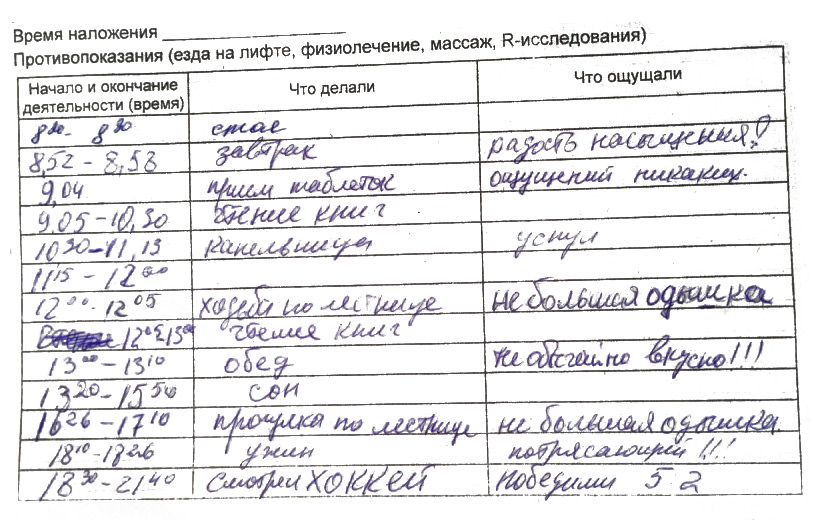 Время наложения
Противопоказания (езда на лифте, физиолечение, массаж, R-исследования)
Начало и окончание деятельности (время) Что делали Что ощущали
8²⁰- 8³⁰
8,52 - 8,58 завтрак радость насыщения!
9,04 прием таблеток ощущений никаких.
9,05-10,30 чтение книг
10³⁰-11,13 капельница уснул
11¹⁵ - 12⁰⁰
12⁰⁰-12⁰⁵ ходьба по лестнице не большая одышка
12⁰⁵-13⁰⁰ чтение книг
13⁰⁰-13¹⁰ обед не обычайно вкусно!!!
13²⁰-15⁵⁰ сон
16²⁶-17¹⁰ прогулка по лестнице не большая одышка
18¹⁰-18²⁶ ужин потрясающий!!!
18³⁰-21⁴⁰ Смотрел ХОККЕЙ Победили 5 2